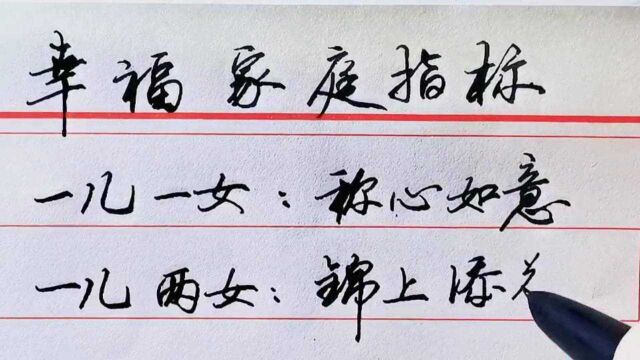 幸福家庭指标
一儿一女：称心如意
一儿两女：锦上添